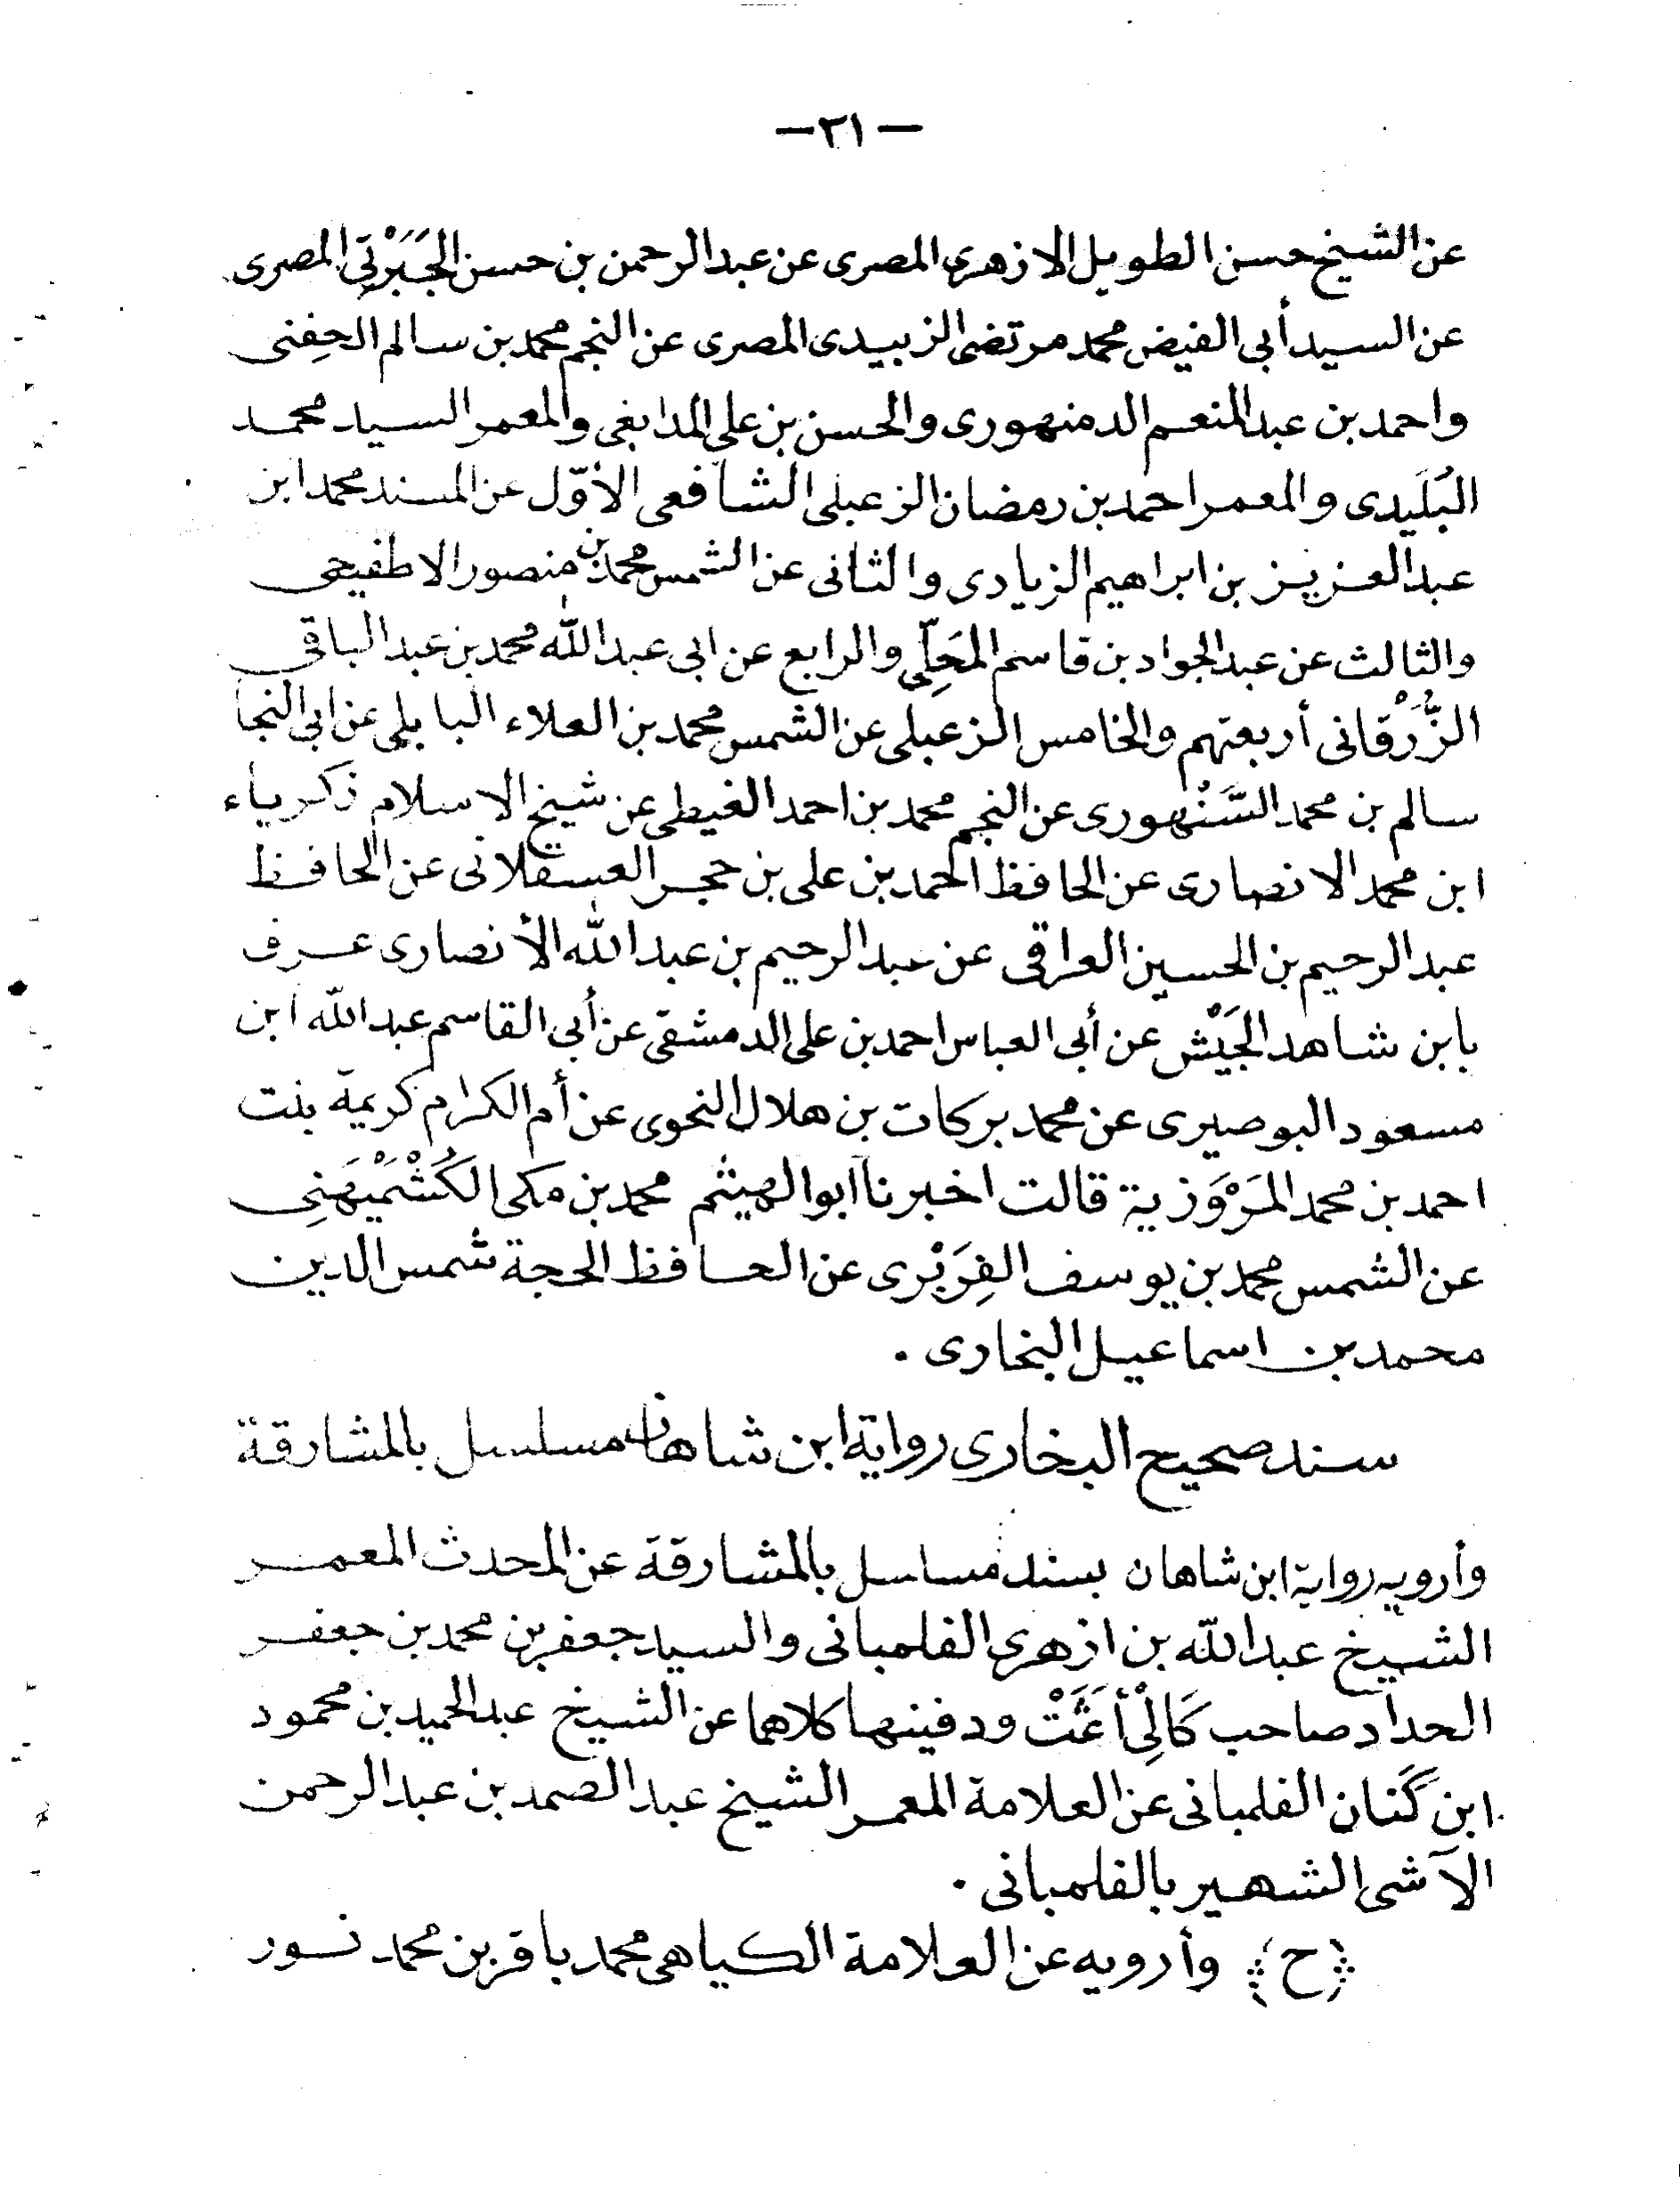 —٢١—
عن الشيخ حسن الطويل الازهرى المصرى عن عبد الرحمن بن حسن الجَبَرْتِى المصرى
عن السيد أبى الفيض محمد مرتضى الزبيدى المصرى عن النجم محمد بن سالم الحِفنى
واحمد بن عبد المنعم الدمنهورى والحسن بن على المدابغى والمعمر السيد محمد
البُلَيدى والمعمر احمد بن رمضان الزعبلى الشافعى الأوّل عن المسند محمد ابن
عبد العزيز بن ابراهيم الزيادى والثانى عن الشمس محمد بن منصور الاطفيحى
والثالث عن عبد الجواد بن قاسم المَحِلّى والرابع عن ابى عبد الله محمد بن عبد الباقى
الزُّرْقانى أربعتهم والخامس الزعبلى عن الشمس محمد بن العلاء البابلى عن ابى النجا
سالم بن محمد السَّنْهورى عن النجم محمد بن احمد الغيطى عن شيخ الاسلام زكرياء
ابن محمد الانصارى عن الحافظ احمد بن على بن حجر العسقلانى عن الحافظ
عبد الرحيم بن الحسين العراقى عن عبد الرحيم بن عبد الله الأنصارى عرف
بابن شاهد الجَيْش عن أبى العباس احمد بن على الدمشقى عن أبى القاسم عبد الله ابن
مسعود البوصيرى عن محمد بركات بن هلال النحوى عن أم الكرام كريمة بنت
احمد بن محمد المَرْوَزية قالت اخبرنا ابو الهيثم محمد بن مكى الكُشْمَيْهَنِى
عن الشمس محمد بن يوسف الفِرَبْرى عن الحافظ الحجة شمس الدين
محمد بن اسماعيل البخارى .
سند صحيح البخارى رواية ابن شاهان مسلسل بالمشارقة
وأرويه رواية ابن شاهان بسند مسلسل بالمشارقة عن المحدث المعمر
الشيخ عبد الله بن ازهرى الفلمبانى والسيد جعفر بن محمد بن جعفر
الحداد صاحب كَالِىْ أَغَتْ ودفينها كلاهما عن الشيخ عبد الحميد بن محمود
ابن كَنان الفلمبانى عن العلامة المعمر الشيخ عبد الصمد بن عبد الرحمن
الآشى الشهير بالفلمبانى .
﴿ح﴾ وأرويه عن العلامة الكياهى محمد باقر بن محمد نور